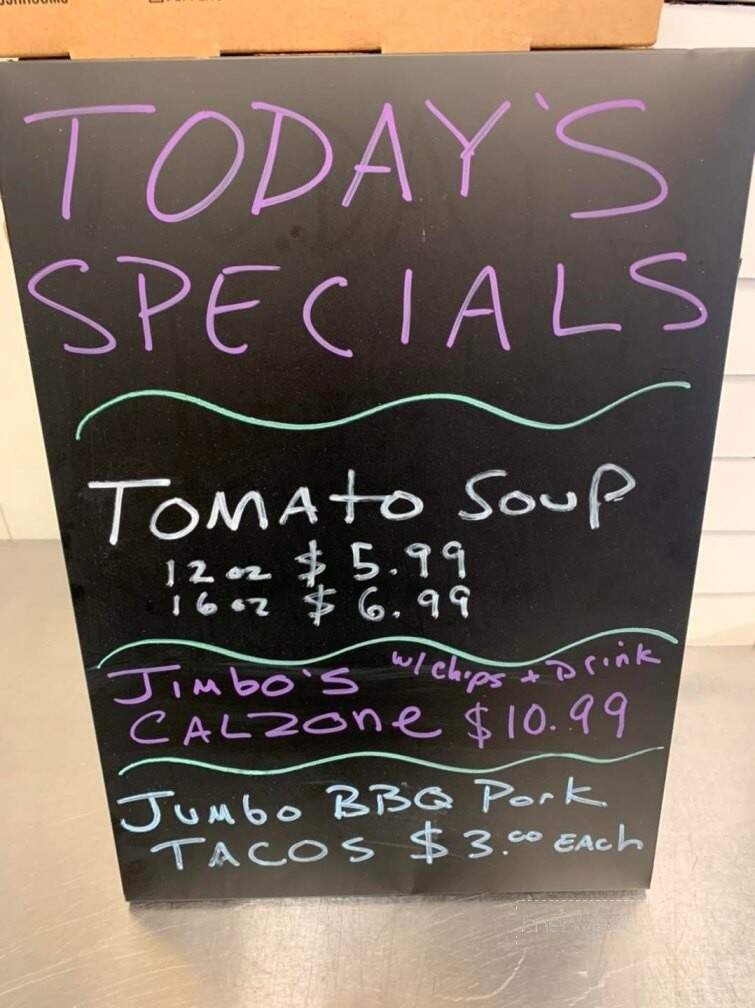 TODAY'S
SPECIALS
TOMATO SOUP
12 oz $ 5.99
16 oz $ 6.99
JIMBO'S w/ chips + Drink
CALZONE $10.99
JUMBO BBQ Pork
TACOS $3.00 EACH